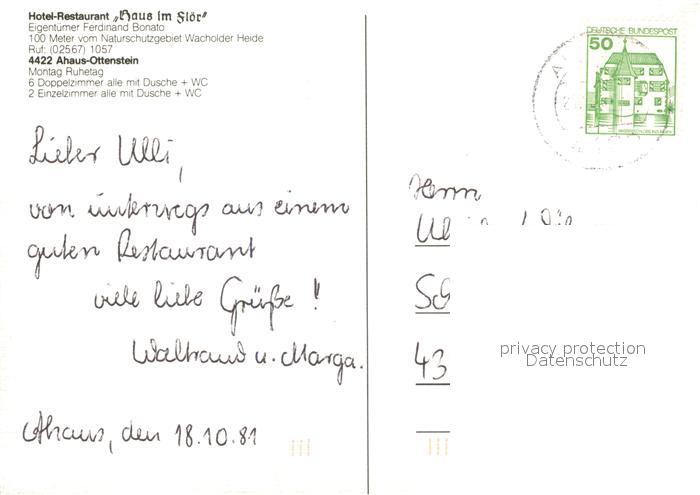 Hotel-Restaurant „Haus im Flör"
Eigentümer Ferdinand Bonato
100 Meter vom Naturschutzgebiet Wacholder Heide
Ruf: (02567) 1057
4422 Ahaus-Ottenstein
Montag Ruhetag
6 Doppelzimmer alle mit Dusche + WC
2 Einzelzimmer alle mit Dusche + WC
DEUTSCHE BUNDESPOST
50
WASSERSCHLOSS INZLINGEN
Lieber Ulli,
von unterwegs aus einem
guten Restaurant
viele liebe Grüße !
Waltraud u. Marga.
Ahaus, den 18.10.81
Herrn
43
privacy protection
Datenschutz